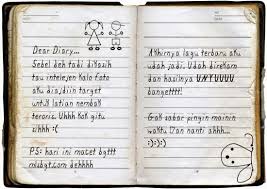 Dear Diary...
Sebel deh tadi dikasih
tau intelejen kalo foto
aku dia/dijiin target
untuk latian nembak
teroris. Uhhh kok gitu
sihhh :(
PS: hari ini macet bgttt
mlsbgt.com dehhhh
Akhirnya lagu terbaru aku
udah jadi. Udah direkam
dan hasilnya UNYUUUU
bangetttt!
Gak sabar pingin mainin
waktu Dan nanti ahhh...
:):):)